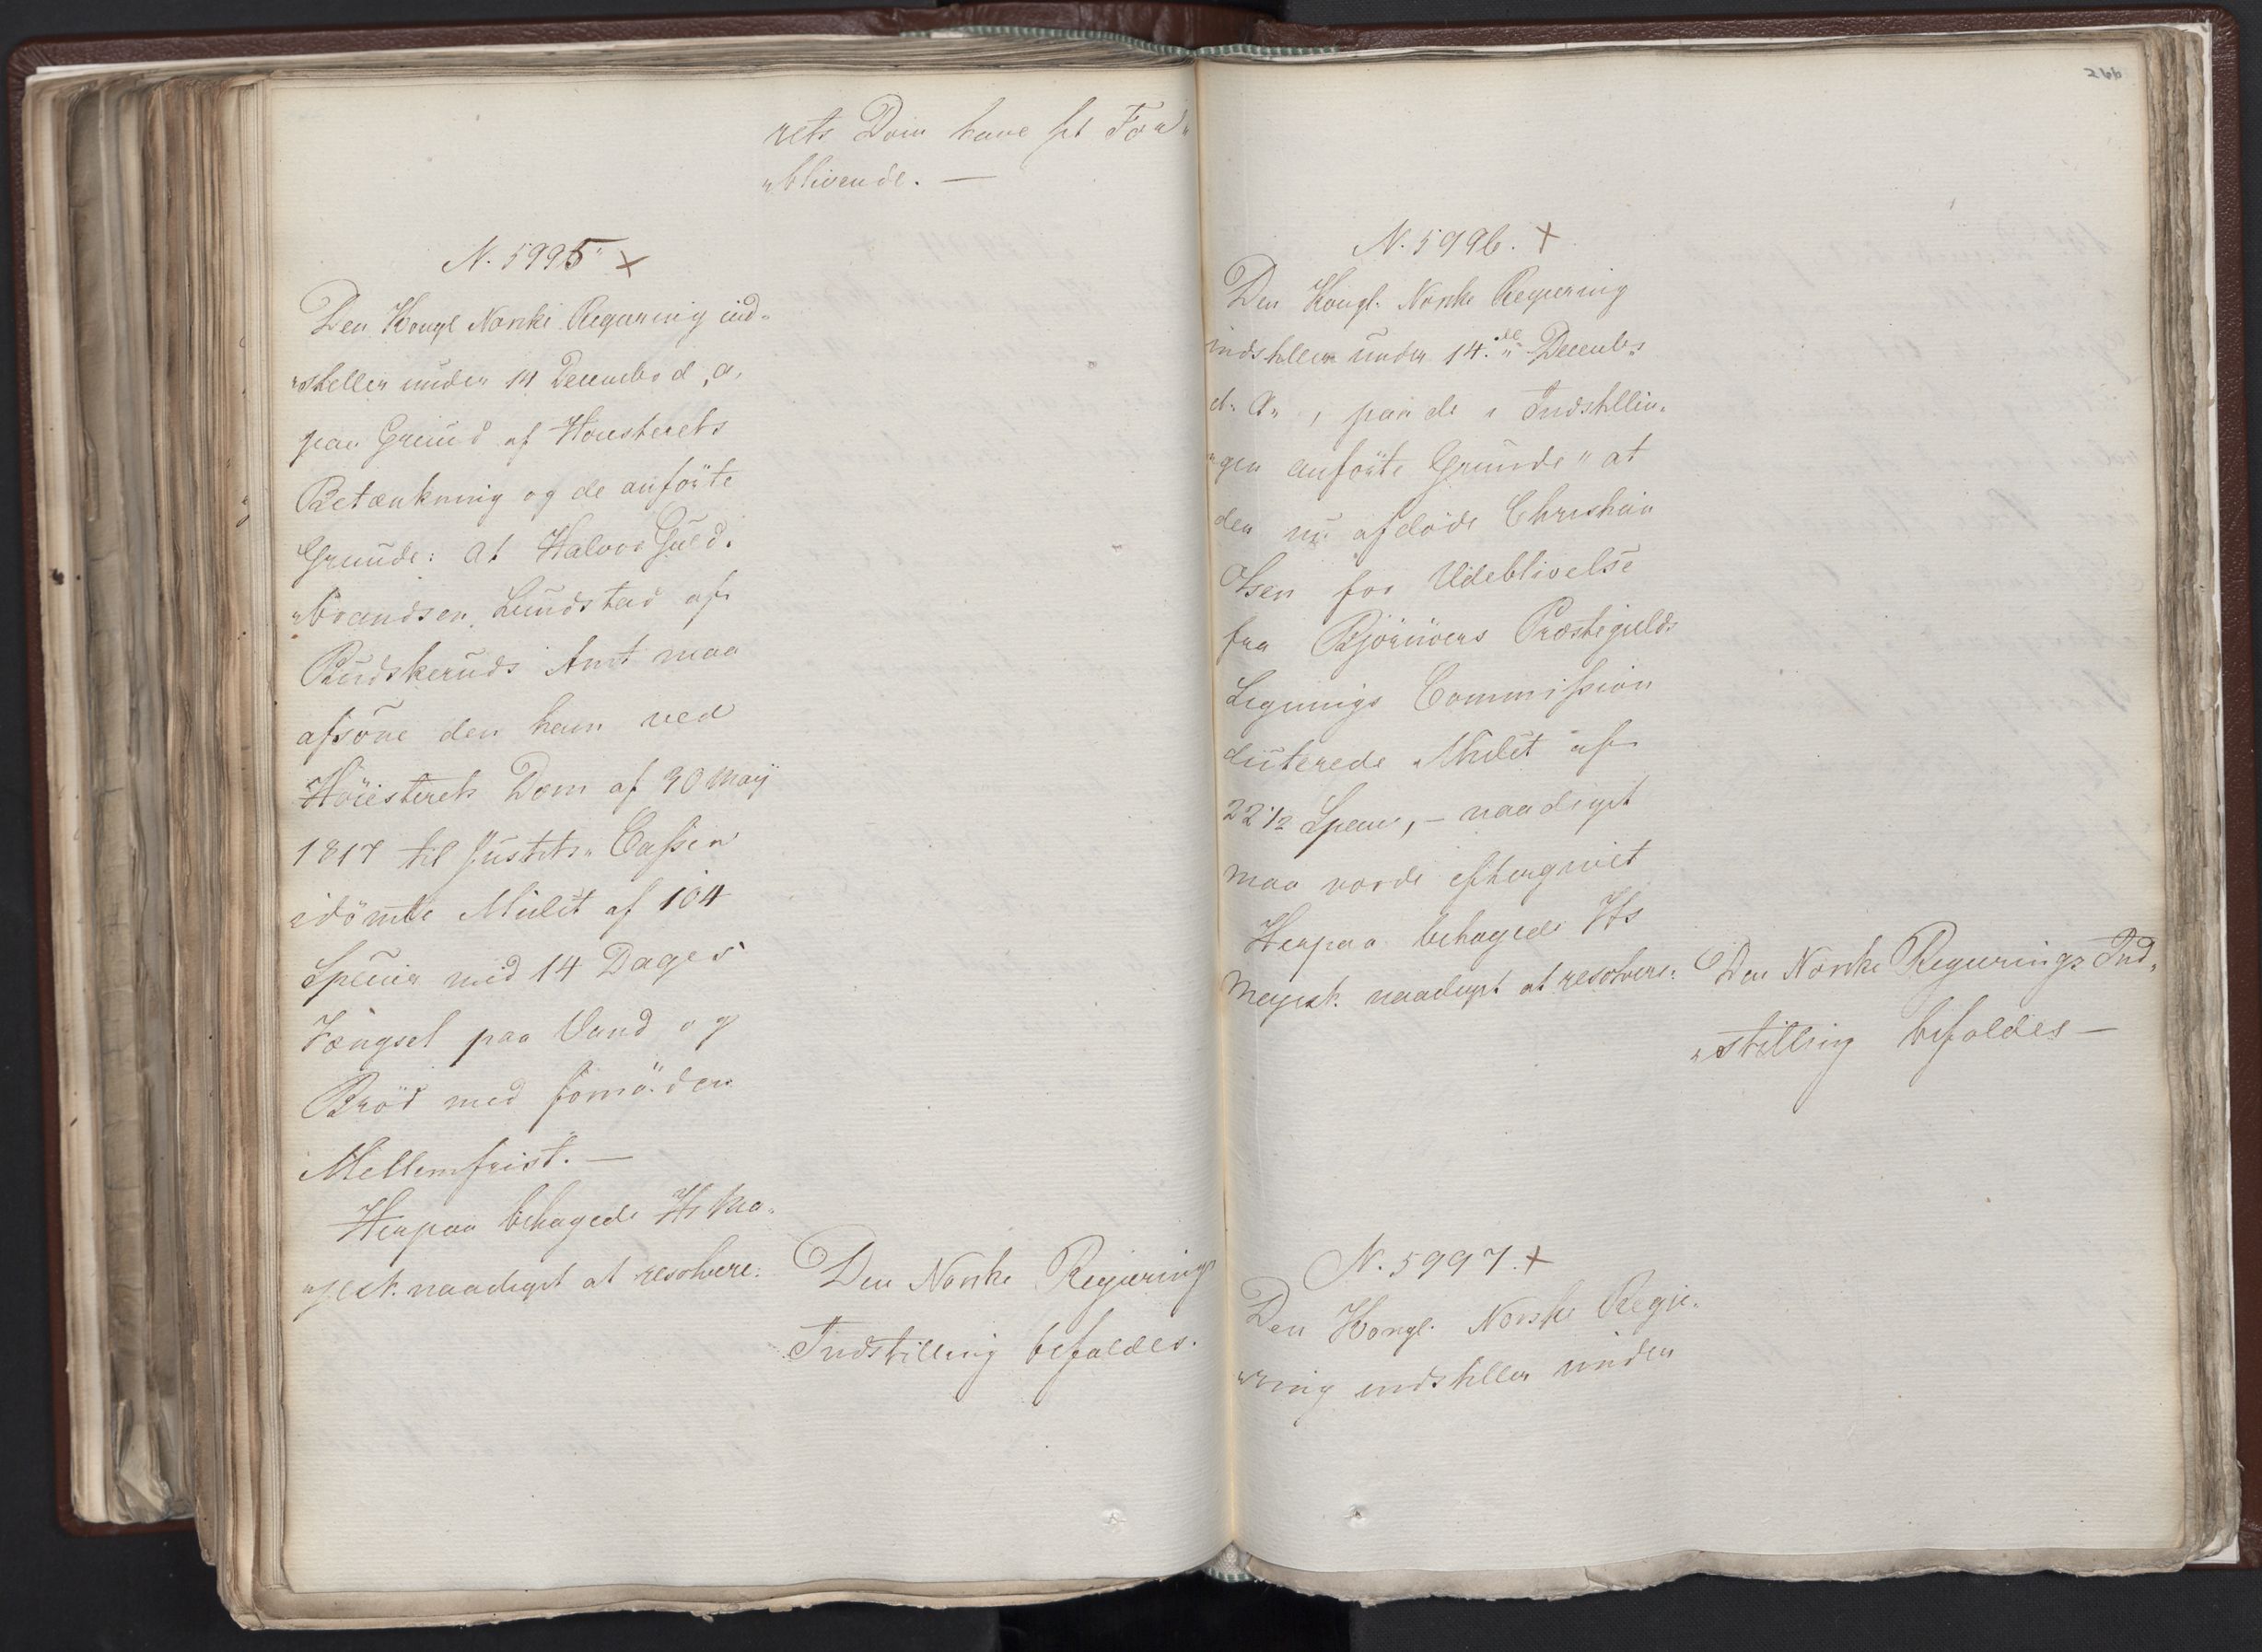 rets Dom have sit For„
„blivende. —
N. 5995 +
Den Kongl Norske Regiering ind„
„stiller under 14 Decembr d. a.
paa Grund af Høiesterets
Betænkning og de anförte
Grunde: at Halvor Guld„
„brandsen Lundstad af
Budskeruds Amt maa
afsöne den ham ved
Höiesterets Dom af 30 Maij
1817 til Justits„ Cassen
idömte Mulct af 104
Specier med 14 Dages
Fængsel paa Vand og
Bröd med fornöden
Mellemfrist. —
Herpaa behagede Hs Ma„
„jest. naadigst at resolvere:
Den Norske Regierings
Indstilling bifaldes.
266
N. 5996. +
Den Kongl. Norske Regiering
indstiller under 14.de Decembr
d. A. , paa de i Indstillin„
„gen anförte Grunde" at
den nu afdöde Christian
Olsen for Udeblivelse
fra Björnöers Præstegields
Lignings Commission
dicterede Mulct af
22 1/2 Specier, - naadigst
maa vorde eftergivet
Herpaa behagede Hs
Majest. naadigst at resolvere:
Den Norske Regierings Ind„
„stilling bifaldes —
N. 5997. +
Den Kongl. Norske Regie„
„ring indstiller under